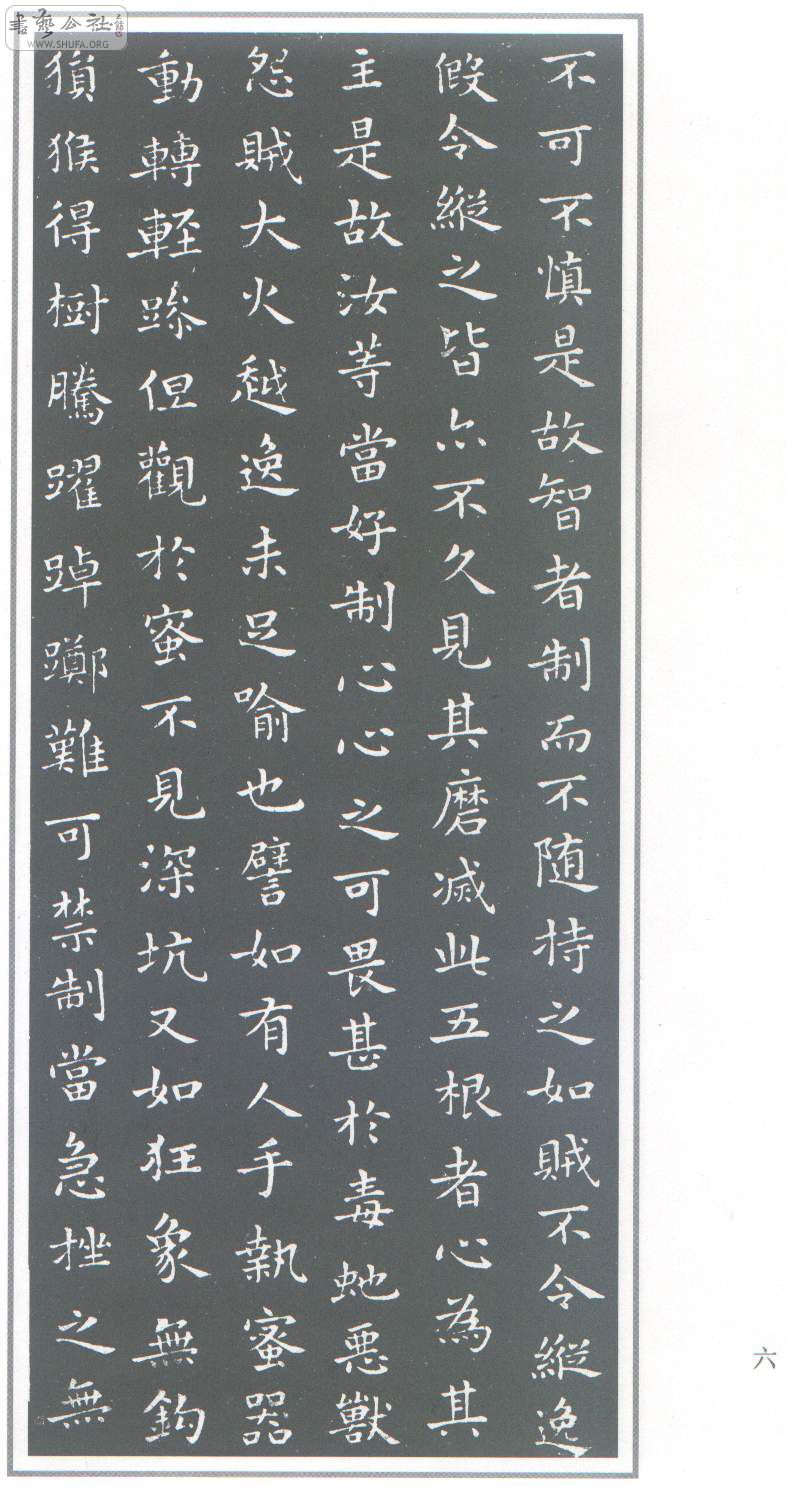 書藝公社
WWW.SHUFA.ORG
不可不慎是故智者制而不随持之如賊不令縱逸
假令縱之皆亦不久見其磨滅此五根者心為其
主是故汝等當好制心心之可畏甚於毒虵惡獸
怨賊大火越逸未足喻也譬如有人手執蜜器
動轉輕躁但觀於蜜不見深坑又如狂象無鉤
猨猴得樹騰躍踔躑難可禁制當急挫之無
六